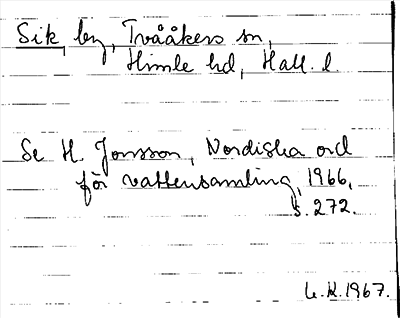 Sik, by, Tvååkers sn,
Himle hd, Hall. l.
Se H. Jonsson, Nordiska ord
för vattensamling, 1966,
s. 272.
1967.